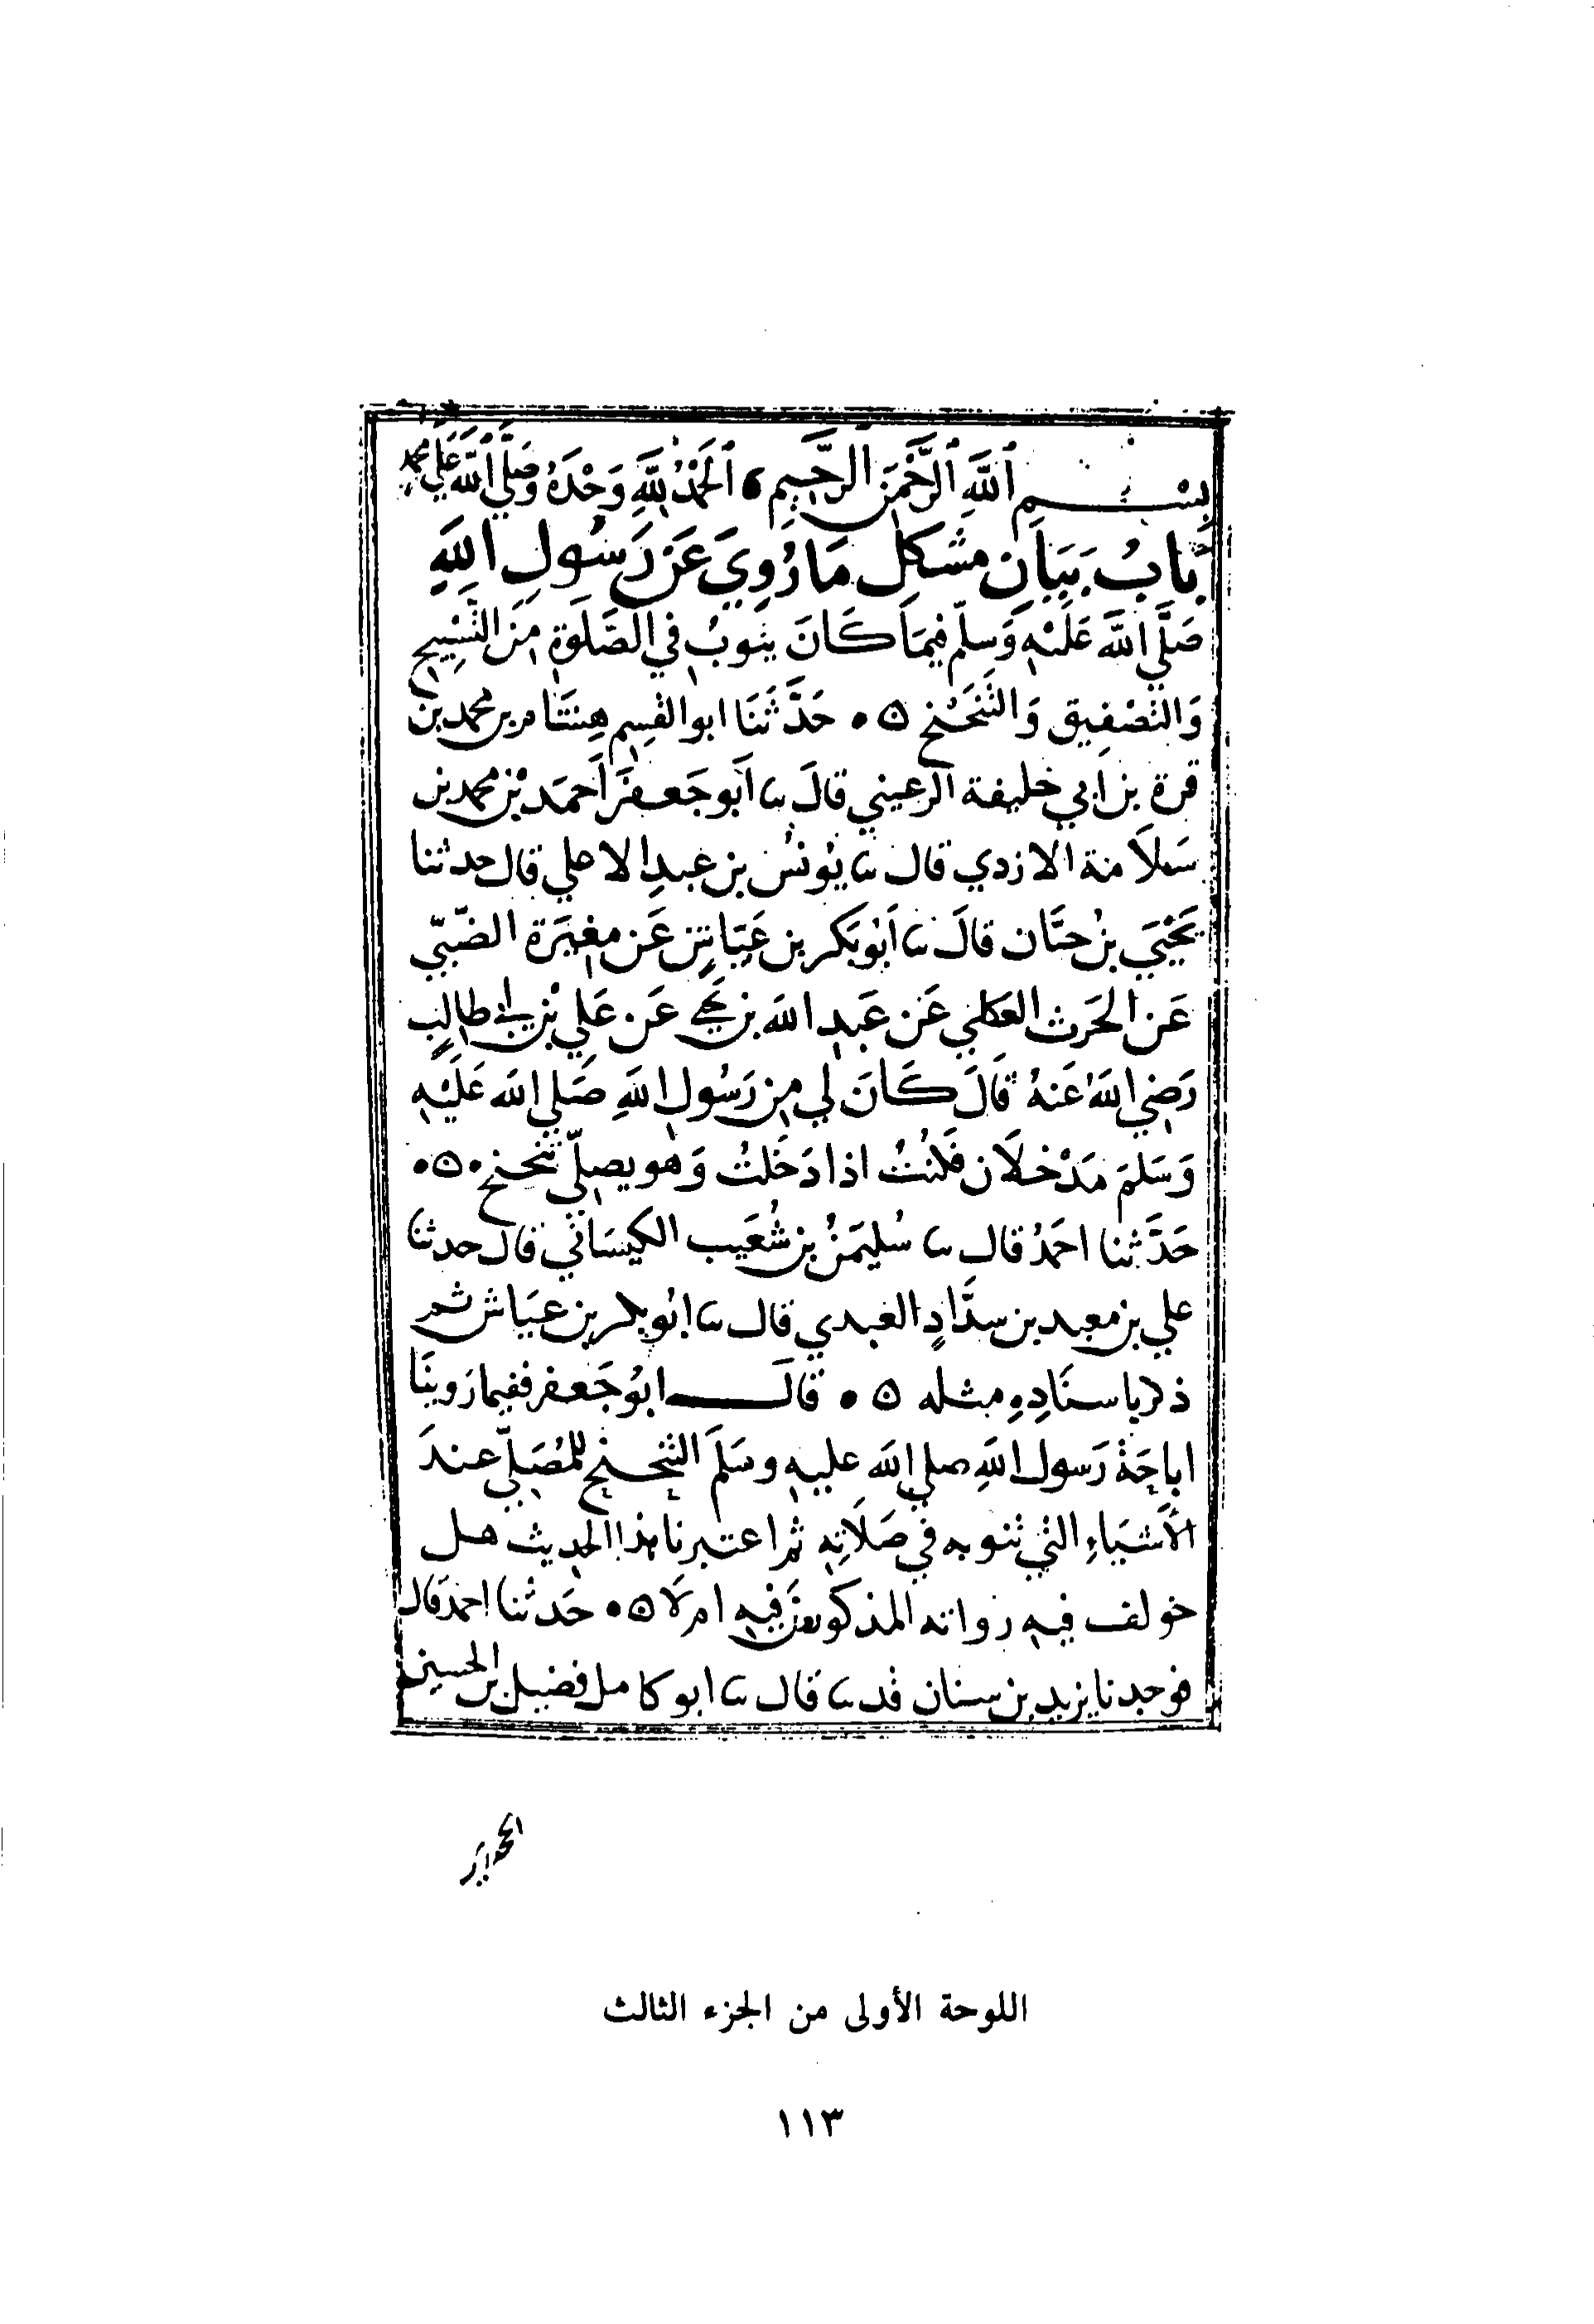 بِسْمِ ٱللَّهِ ٱلرَّحْمَنِ ٱلرَّحِيمِ ٱلْحَمْدُ لِلَّهِ وَحْدَهُ وَصَلَّى ٱللَّهُ عَلَى مُحَمَّدٍ
بَابُ بَيَانِ مشكِلِ مَا رُوِيَ عَن رَسُولِ اللَّهِ
صَلَّي اللَّهُ عَلَيْهِ وَسَلَّم فِيمَا كَانَ يَنُوبُ في الصَّلَوةِ مِنَ التَّسْبِيحِ
وَالتصْفِيق وَالتَّنَحْنُحِ ٥ • حَدَّثَنَا ابوالقسِم هِشَام بن محمد بن
قرة بن أبي خليفة الرعيني قالَ ثنا أبو جَعفَر أَحمَد بْن محمد بن
سَلاَمة الازدي قال ثنا يُونسُ بن عبدِ الاعلي قال حدثنا
يَحْيَي بنُ حسَّان قالَ ثنا أبُو بَكر بن عَيّاشٍ عَن مغِيرَة الضّبّي
عَن الحَرث العكلي عَن عَبدِ الله بن نجي عَن عَلي بْن أبي طالبٍ
رَضِي اللهُ عَنهُ قَالَ كَانَ لي مِن رَسُولِ اللَّهِ صَلي الله عَلَيْهِ
وَسَلمَ مَدْخلاَن فكنتُ اذا دَخَلتُ وَهو يصلِّي تنحنح • ٥ •
حَدَّثنا احمَدُ قال ثنا سُليمَنُ بن شُعَيب الكيسَاني قال حدثنا
علي بن معبد بن شدَّادٍ العبدي قال ثنا ابُو بكر بن عيَاش ثم
ذكر باسنَادِهِ مثله ٥ • قالَ ابوُ جَعفر ففيما رَوينَا
اباحَةُ رَسول اللهِ صلي الله عليه وسَلمَ التنحنح للمُصَلّي عندَ
الأشيَاءِ التي تنوبه في صَلاَتِهِ ثم اعتبرنا هذا الحديث هل
خولف فيه رواته المذكورين فيه ام لا ٥ • حَدثنا احمد قال
فوجدنا يزيد بن سنان قد ثنا قال ثنا ابو كامل فضيل بن الحسين
اللوحة الأولى من الجزء الثالث
١١٣